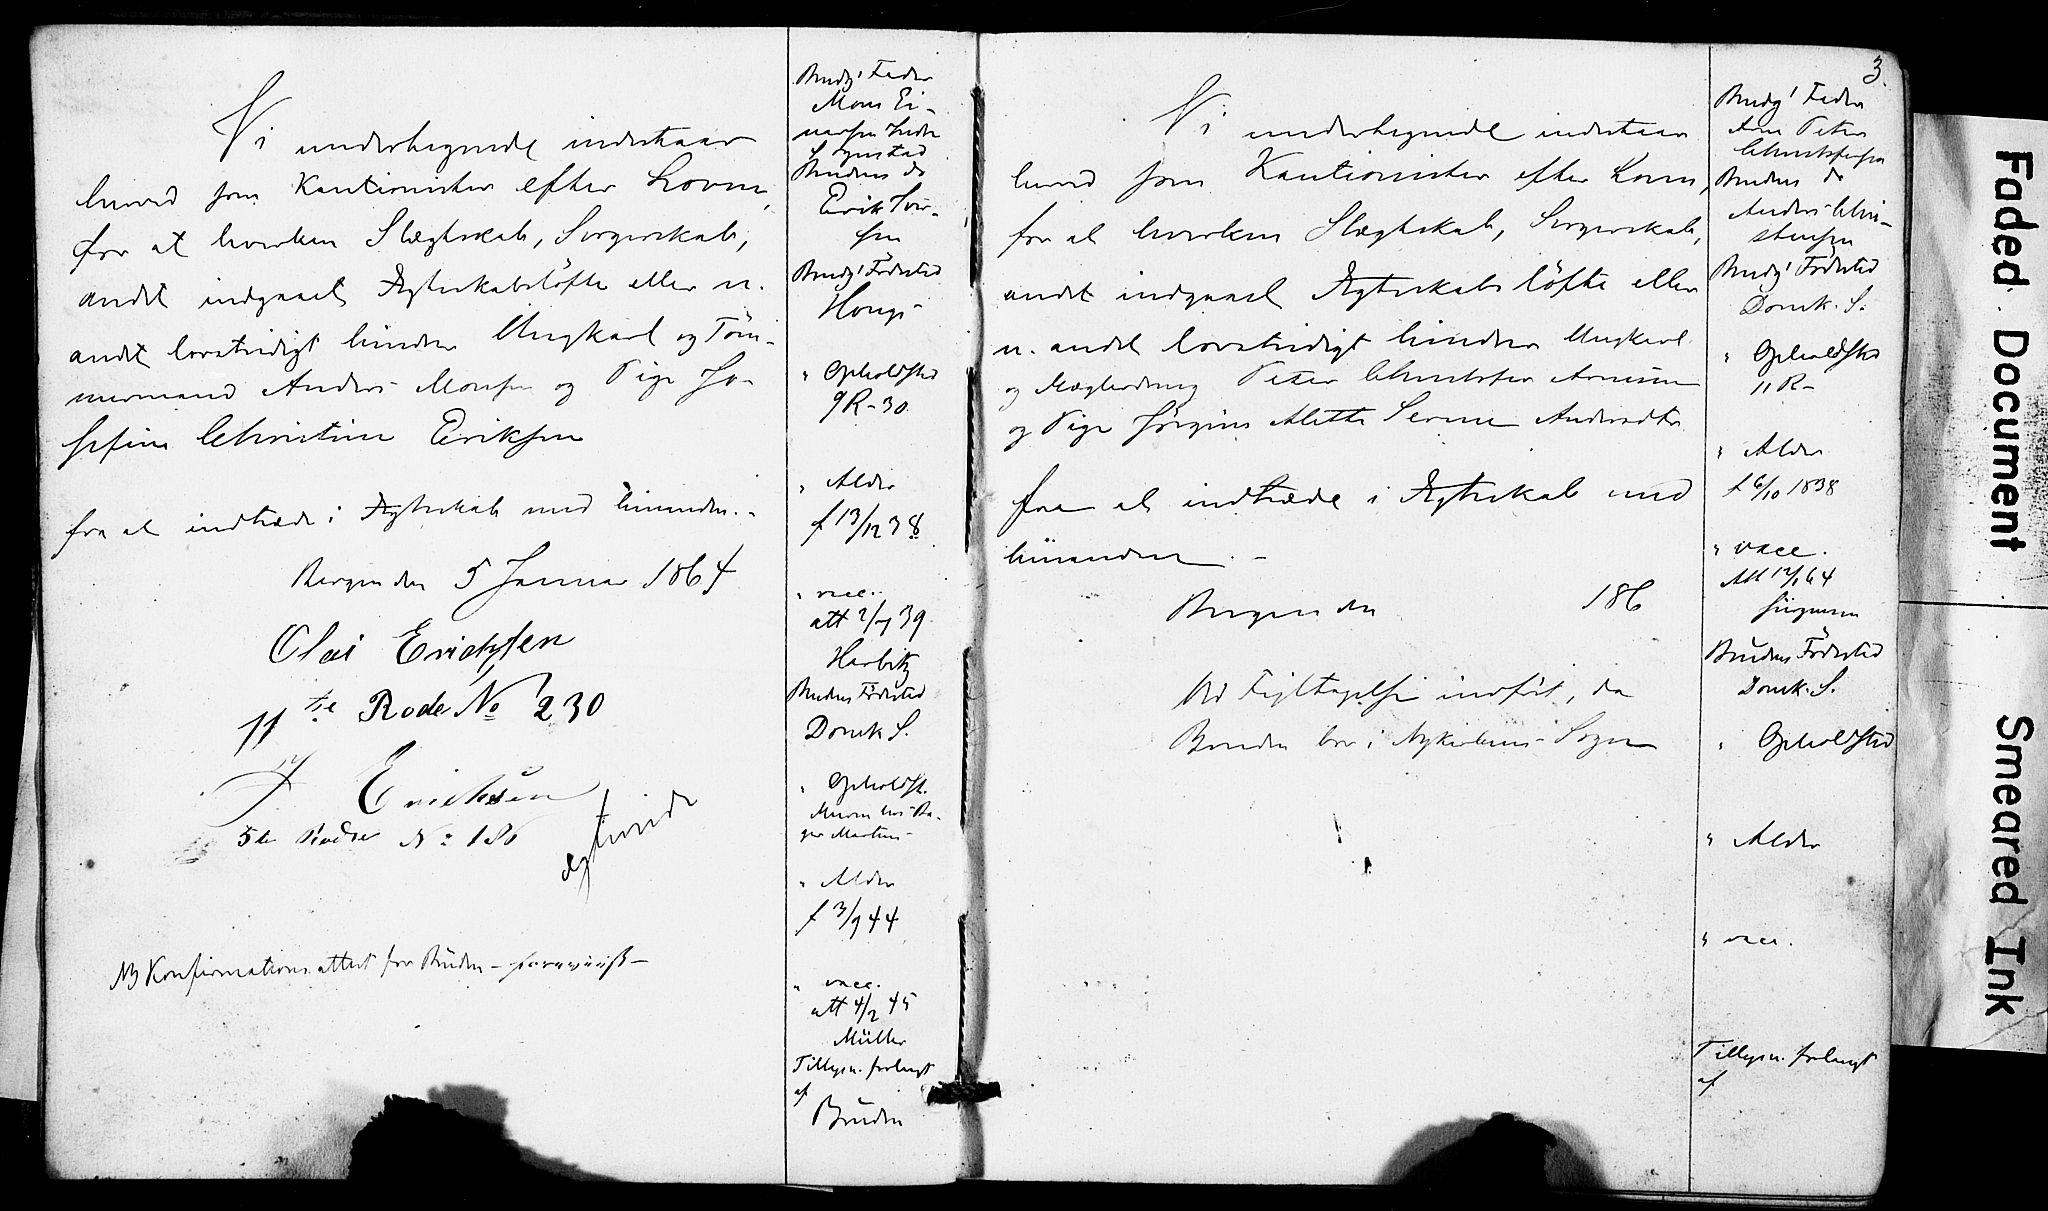 Vi undertegnede indestaar
herved som Kautionister efter Loven,
for at hverken Slægtskab, Svogerskab,
andet indgaaet Ægteskabsløfte eller n.
andet lovstridigt hindrer Ungkarl og Töm-
mermand Anders Monsen og Pige Jo-
sefine Christine Eriksen
fra at indtræde i Ægteskab med hinanden.-
Bergen den 5 Januar 1864
Olai Erichsen
11te Rode No 230
Erichsen
5te Rode No 186
ægteviede
NB Konfirmationsattest for Bruden - forevist -
Brudg' Fader
Mons Ei-
narsen Indre
Brudens do
Erik Iver-
sen
Brudg' Födested
Hougs
" Opholdsted
9R-30
" Alder
f 13/12 38
" vacc.
att 2/7 39
Harbitz
Brudens Födested
Domk S.
" Opholdst.
" Alder
f 3/9 44
" vacc.
att 4/2 45
Müller
Tillysn. forlangt
af
Bruden
3
Vi undertegnede indestaar
herved som Kautionister efter Loven,
for at hverken Slægtskab, Svogerskab,
andet indgaaet Ægteskabsløfte eller
n. andet lovstridigt hindrer Ungkarl
og Mæglerdreng Peter Christofer Arnesen
og Pige Jørgine Alette Severine Andersdtr
fra at indtræde i Ægteskab med
hinanden. -
Bergen den 186
Ved Fejltagelse indført, da
Bruden bor i Nykirkens Sogn
Brudg' Fader
Arne Peter
Christofersen
Brudens do
Anders Chri-
stensen
Brudg' Födested
Domk. S.
" Opholdsted
11 R-
" Alder
f 6/10 1838
" vacc.
Att 12/1 64
Jürgensen
Brudens Födested
Domk. S.
" Opholdsted
" Alder
" vacc.
Tillysn. forlangt
af
Faded Document
Smeared Ink